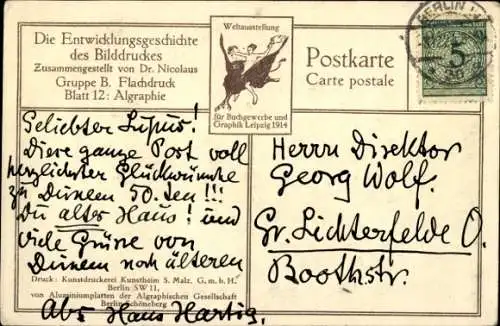 Die Entwicklungsgeschichte
des Bilddruckes
Zusammengestellt von Dr. Nicolaus
Gruppe B. Flachdruck
Blatt 12: Algraphie
Weltausstellung
für Buchgewerbe und
Graphik Leipzig 1914
Postkarte
Carte postale
BERLIN
5
Geliebter Lupus!
Diese ganze Post voll
herzlichster Glückwünsche
zu Deinem 50. ten!!!
Du altes Haus! und
viele Grüsse von
Deinem noch älteren
Hans Hartig.
Druck: Kunstdruckerei Kunstheim S. Malz, G. m. b. H.
Berlin SW 11,
von Aluminiumplatten der Algraphischen Gesellschaft
Berlin-Schöneberg
Herrn Direktor
Georg Wolf.
Gr. Lichterfelde O.
Boothstr.